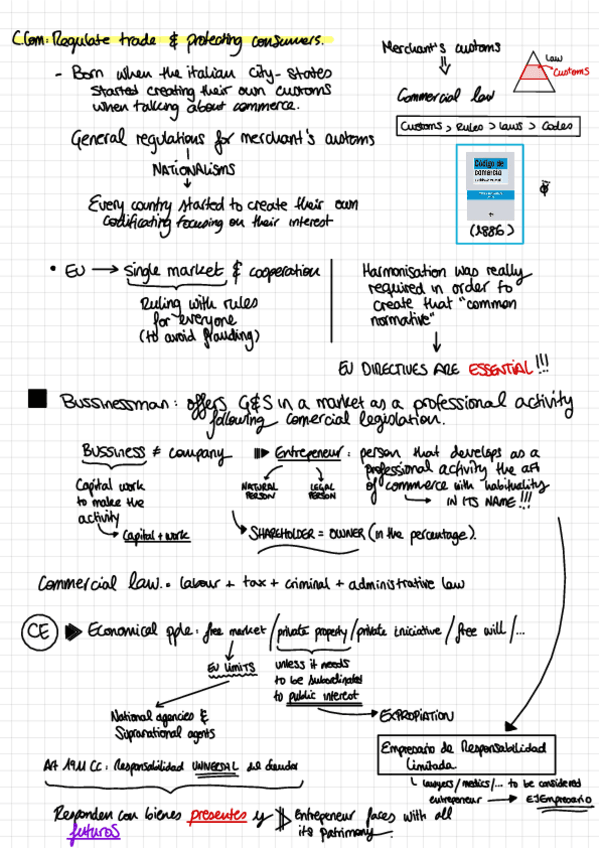 C.Com: Regulate trade & protecting consumers.
- Born when the italian city-states
started creating their own customs
when talking about commerce.
General regulations for merchant's customs
NATIONALISMS
Every country started to create their own
codificating focusing on their interest
Merchant's customs
Commercial law
Law
Customs
Customs > Rules > Laws > Codes
Código de
comercio
(1886)
• EU → Single market & cooperation
Ruling with rules
for everyone
(to avoid frauding)
Harmonisation was really
required in order to
create that "common
normative"
EU DIRECTIVES ARE ESSENTIAL!!!
Bussinessman: offers G&S in a market as a professional activity
following comercial legislation.
Bussiness ≠ company
Capital work
to make the
activity
Capital + work
Entrepeneur: person that develops as a
professional activity the art
of commerce with habituality
IN ITS NAME!!!
NATURAL
PERSON
LEGAL
PERSON
SHAREHOLDER = OWNER (in the percentage).
Commercial law.• labour + tax + criminal + administrative law
CE
Economical pple: free market / private property / private iniciative / free will /...
EU limits
unless it needs
to be subordinated
to public interest
National agencies &
Supranational agents
EXPROPIATION
Empresario de Responsabilidad
Limitada
lawyers/medics/... to be considered
entrepeneur → EJEmpresario
Art 1911 CC: Responsabilidad UNIVERSAL del deudor
Responden con bienes presentes y
futuros
Entrepeneur faces with all
its patrimony.